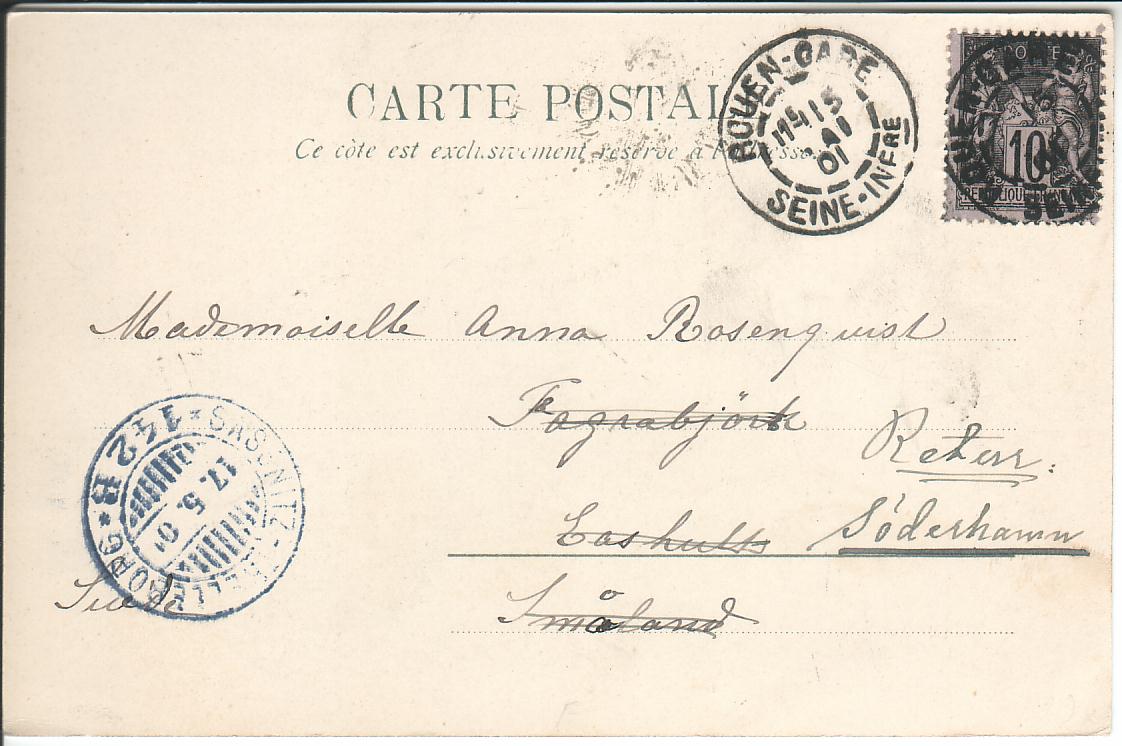 CARTE POSTAL
Ce côté est exclusivement réservé à l'adresse
ROUEN-GARE
15
MAI
01
SEINE-INFRE
POSTE
10
REPUBLIQUE FRANCAISE
Mademoiselle Anna Rosenqvist
Fagrabjörk
Reterr:
Eoshults Söderhamn
Småland
Suède
SASSNITZ-TRELLEBORG
142 B
17.5.01